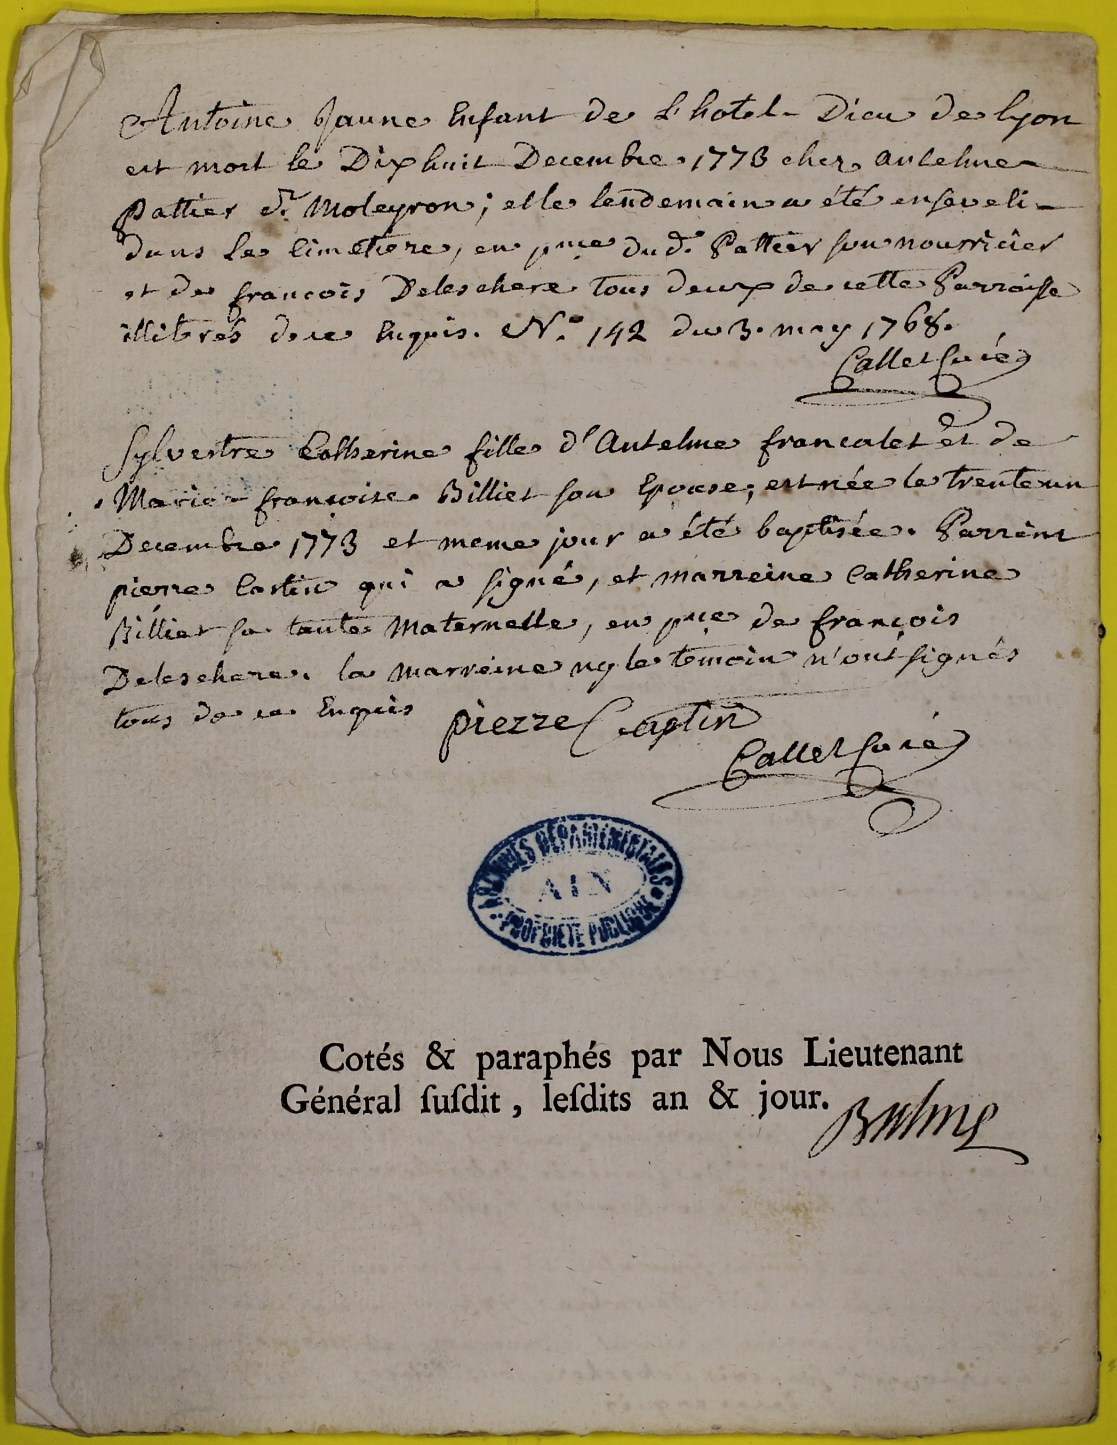 Antoine Jaune Enfant de L'hotel-Dieu de lyon
est mort le Dixhuit Decembre 1773 chez antelme
Pattier d.t Moleyron; et le lendemain a été enseveli
dans le Cimetiere, en pnce du d.t Pattier son nourricier
et de françois Deleschere tous deux de cette Parroisse
illitérés de ce Enquis. N.o 142 du 3. may 1768.
Callet Curé
Sylvestre Catherine fille d'Antelme francalet et de
Marie françoise Billiet son Epouse, est née le trenteun
Decembre 1773 et meme jour a été baptisée. Parrein
pierre qui a signé, et marreine Catherine
Billiet sa tante Maternelle, en pnce de françois
Deleschere. la marreine ny le temoin n'ont signés
tous de ce Enquis pierre
Callet Curé
ARCHIVES DEPARTEMENTALES
AIN
PROPRIETE PUBLIQUE
Cotés & paraphés par Nous Lieutenant
Général ſuſdit, leſdits an & jour.